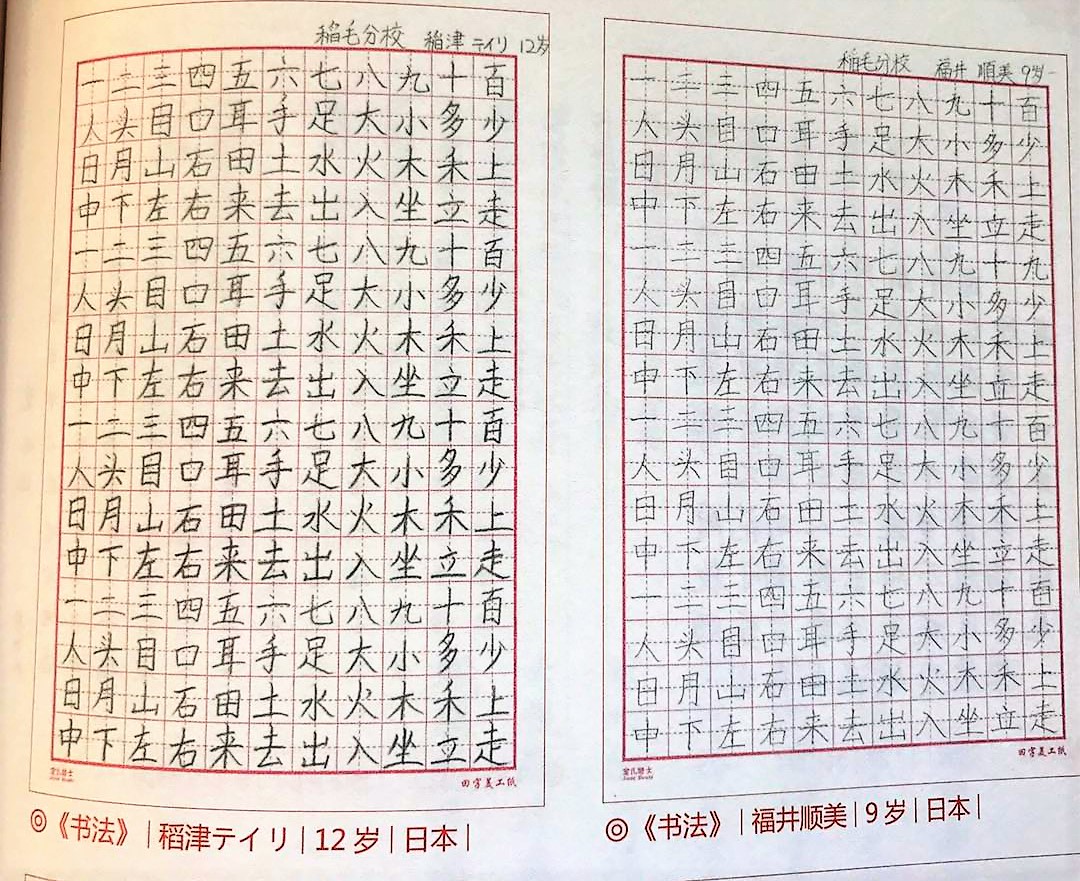 稲毛分校 稲津 テイリ 12岁
一二三四五六七八九十百
人头目口耳手足大小多少
日月山石田土水火木禾上
中下左右来去出入坐立走
一二三四五六七八九十百
人头目口耳手足大小多少
日月山石田土水火木禾上
中下左右来去出入坐立走
一二三四五六七八九十百
人头目口耳手足大小多少
日月山石田土水火木禾上
中下左右来去出入坐立走
一二三四五六七八九十百
人头目口耳手足大小多少
日月山石田土水火木禾上
中下左右来去出入坐立走
田字美工纸
◎《书法》|稻津テイリ|12岁|日本|
稲毛分校 福井 順美 9岁
一二三四五六七八九十百
人头目口耳手足大小多少
日月山石田土水火木禾上
中下左右来去出入坐立走
一二三四五六七八九十九
人头目口耳手足大小多少
日月山石田土水火木禾上
中下左右来去出入坐立走
一二三四五六七八九十百
人头目口耳手足大小多少
日月山石田土水火木禾上
中下左右来去出入坐立走
一二三四五六七八九十百
人头目口耳手足大小多少
日月山石田土水火木禾上
中下左右来去出入坐立走
田字美工纸
◎《书法》|福井顺美|9岁|日本|